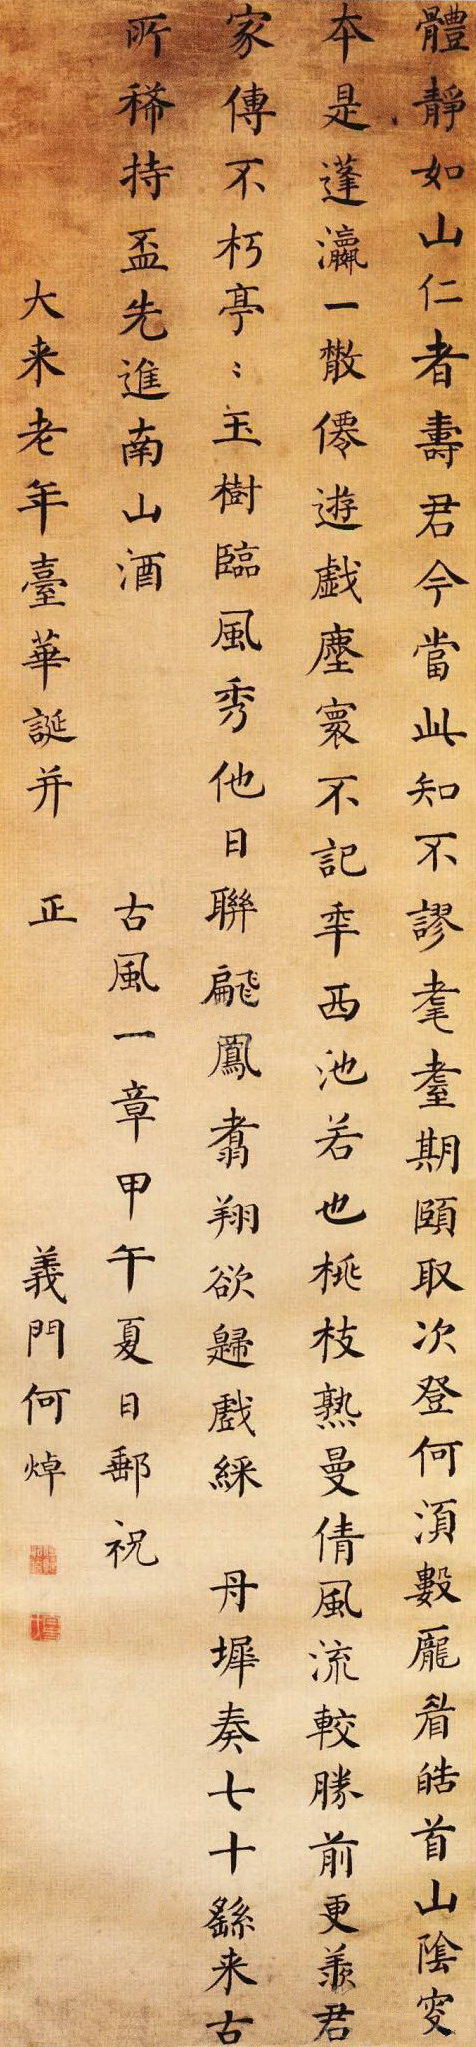 體靜如山仁者壽君今當此知不謬耄耋期頤取次登何須數龎眉皓首山陰叟
本是蓬瀛一散僊遊戲塵寰不記年西池若也桃枝熟曼倩風流較勝前更羨君
家傳不朽亭〻玉樹臨風秀他日聯翩鳳翥翔欲歸戲綵 丹墀奏七十繇来古
所稀持盃先進南山酒 古風一章甲午夏日郵祝
大来老年臺華誕并 正 義門何焯